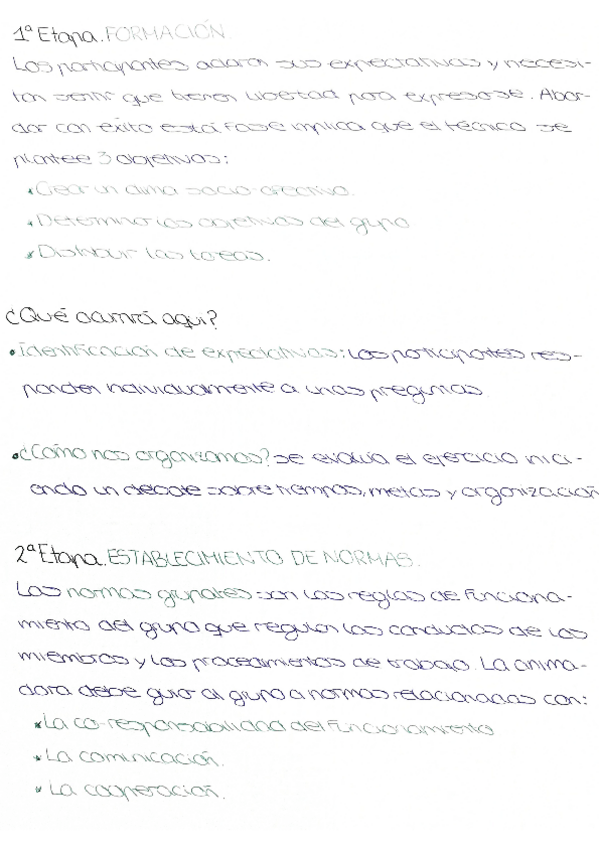 1ª Etapa. FORMACIÓN.
Los participantes aclaran sus expectativas y necesi-
tan sentir que tienen libertad para expresarse. Abor-
dar con éxito está fase implica que el técnico se
plantee 3 objetivos:
*Crear un clima socio-creativo.
*Determinar los objetivos del grupo
*Distribuir las tareas.
¿Qué ocurrirá aquí?
•identificación de expectativas: Los participantes res-
ponden individualmente a unas preguntas
•¿Cómo nos organizamos? Se evalúa el ejercicio inici-
ando un debate sobre tiempos, metas y organización
2ª Etapa. ESTABLECIMIENTO DE NORMAS.
Las normas grupales son las reglas de funciona-
miento del grupo que regulan las conductas de los
miembros y los procedimientos de trabajo. La anima-
dora debe guiar al grupo a normas relacionadas con:
*La co-responsabilidad del funcionamiento
*La comunicación.
*La cooperación.